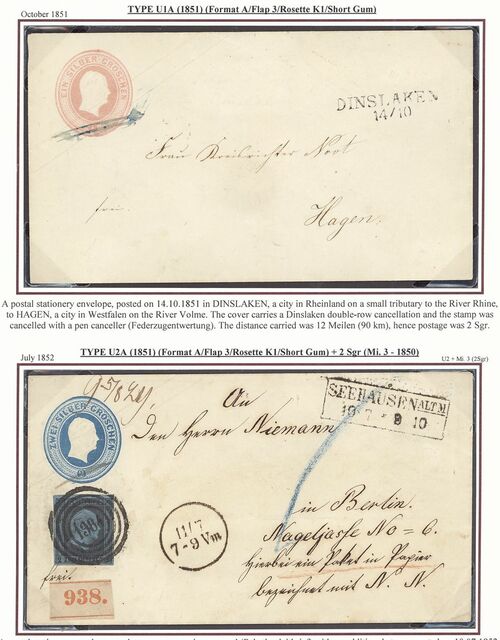 October 1851
TYPE U1A (1851) (Format A/Flap 3/Rosette K1/Short Gum)
EIN SILBER GROSCHEN
DINSLAKEN
14/10
Frau Kreisrichter Noot
frei.
Hagen.
A postal stationery envelope, posted on 14.10.1851 in DINSLAKEN, a city in Rheinland on a small tributary to the River Rhine,
to HAGEN, a city in Westfalen on the River Volme. The cover carries a Dinslaken double-row cancellation and the stamp was
cancelled with a pen canceller (Federzugentwertung). The distance carried was 12 Meilen (90 km), hence postage was 2 Sgr.
July 1852
TYPE U2A (1851) (Format A/Flap 3/Rosette K1/Short Gum) + 2 Sgr (Mi. 3 - 1850)
U2 + Mi. 3 (2Sgr)
ZWEI SILBER GROSCHEN
An
SEEHAUSEN ALTM
10 7 9 10
Den Herrn Niemann
in Berlin.
11/7
7-9 Vm
Nagelgasse No = 6.
Hierbei ein Paket in Papier
frei.
bezeichnet mit N. N.
938.